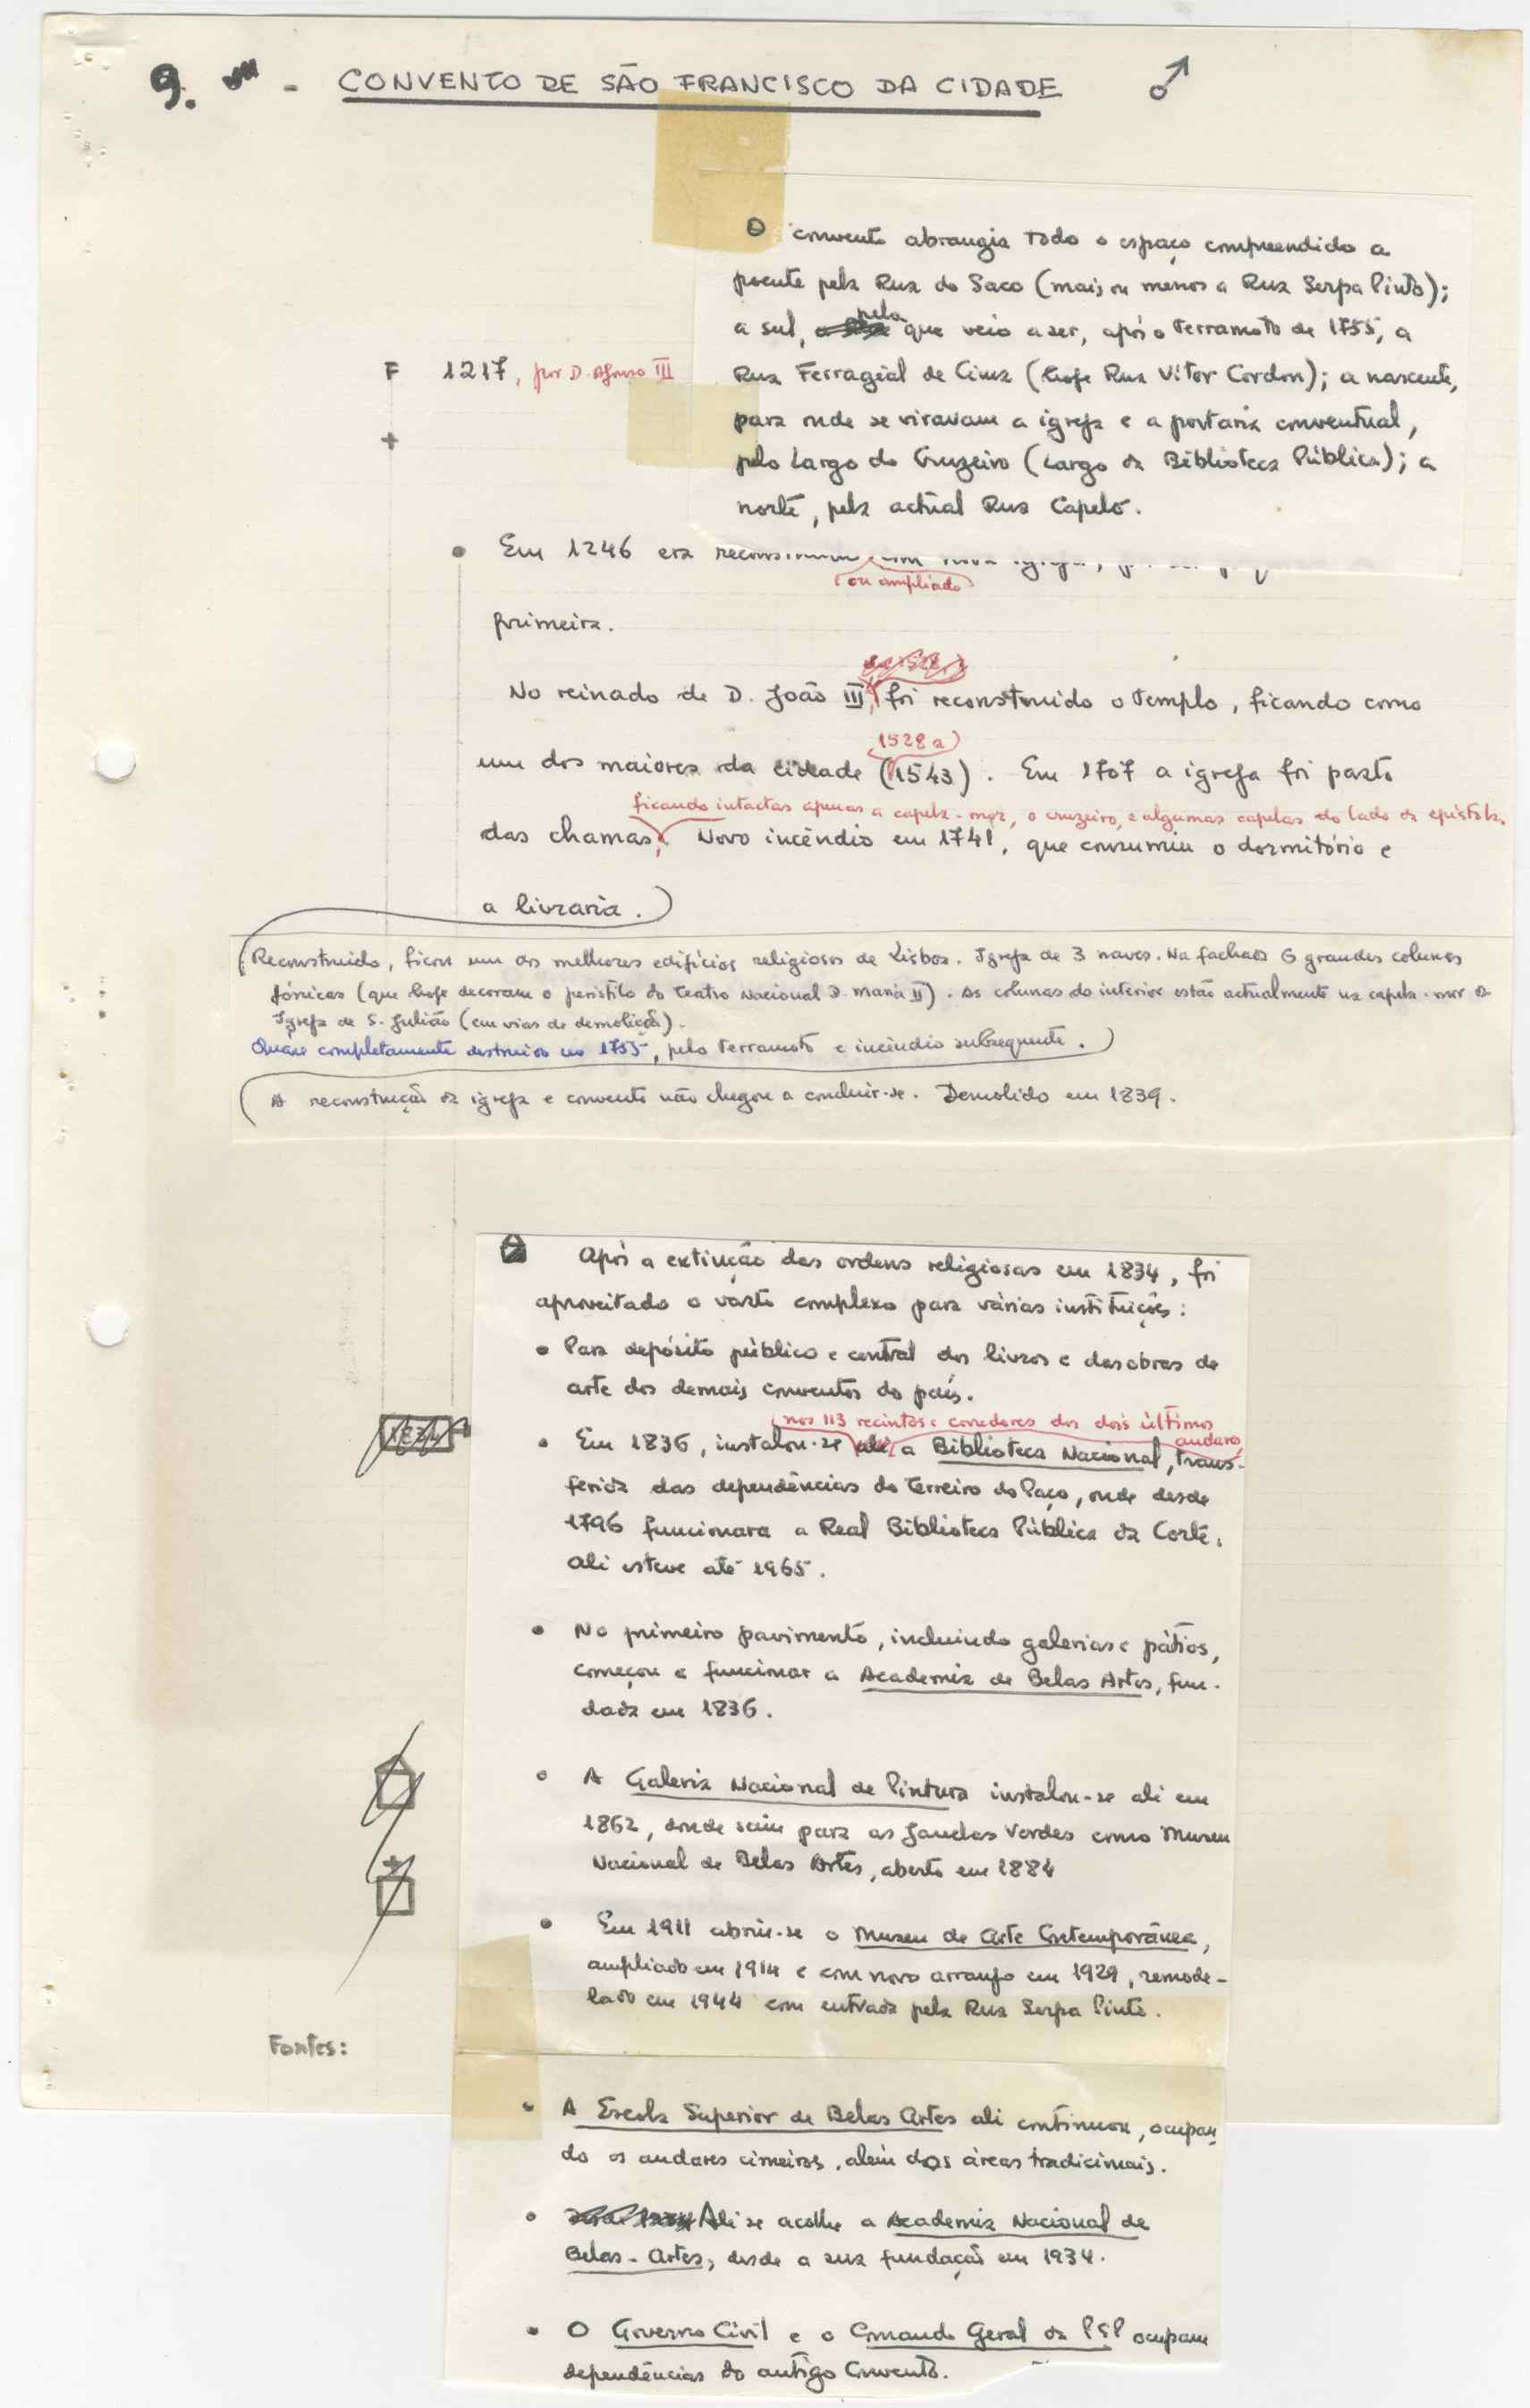 9. - CONVENTO DE SÃO FRANCISCO DA CIDADE ♂
O convento abrangia todo o espaço compreendido a
poente pela Rua do Saco (mais ou menos a Rua Serpa Pinto);
a sul, pelo que veio a ser, após o terramoto de 1755, a
F 1217, por D. Afonso III
Rua Ferragial de Cima (hoje Rua Vitor Cordon); a nascente,
para onde se viravam a igreja e a portaria conventual,
+
pelo Largo do Cruzeiro (Largo da Biblioteca Pública); a
norte, pela actual Rua Capelo.
Em 1246 era
(ou ampliado)
primeira.
No reinado de D. João III, foi reconstruido o templo, ficando como
1528 a
um dos maiores da cidade (1543). Em 1707 a igreja foi pasto
ficando intactas apenas a capela-mor, o cruzeiro, e algumas capelas do lado da epístola.
das chamas, Novo incêndio em 1741, que consumiu o dormitório e
a livraria.)
(Reconstruido, ficou um dos melhores edifícios religiosos de Lisboa. Igreja de 3 naves. Na fachada 6 grandes colunas
jónicas (que hoje decoram o peristilo do Teatro Nacional D. Maria II). As colunas do interior estão actualmente na capela-mor da
Igreja de S. Julião (em vias de demolição).
Quase completamente destruido em 1755, pelo terramoto e incêndio subsequente.)
(A reconstrução da igreja e convento não chegou a concluir-se. Demolido em 1839.
Após a extinção das ordens religiosas em 1834, foi
aproveitado o vasto complexo para várias instituições:
• Para depósito público e central dos livros e das obras de
arte dos demais conventos do país.
(nos 113 recintos e corredores dos dois últimos
andares)
• Em 1836, instalou-se ali a Biblioteca Nacional, trans-
ferida das dependências do Terreiro do Paço, onde desde
1796 funcionara a Real Biblioteca Pública da Corte.
Ali esteve até 1965.
• No primeiro pavimento, incluindo galerias e pátios,
começou a funcionar a Academia de Belas Artes, fun-
dada em 1836.
• A Galeria Nacional de Pintura instalou-se ali em
1862, donde saiu para as Janelas Verdes como Museu
Nacional de Belas Artes, aberto em 1884
• Em 1911 abriu-se o Museu de Arte Contemporânea,
ampliado em 1914 e com novo arranjo em 1929, remode-
lado em 1944 com entrada pela Rua Serpa Pinto.
Fontes:
• A Escola Superior de Belas Artes ali continuou, ocupan
do os andares cimeiros, além das áreas tradicionais.
• Ali se acolhe a Academia Nacional de
Belas-Artes, desde a sua fundação em 1934.
• O Governo Civil e o Comando Geral da PSP ocupam
dependências do antigo Convento.